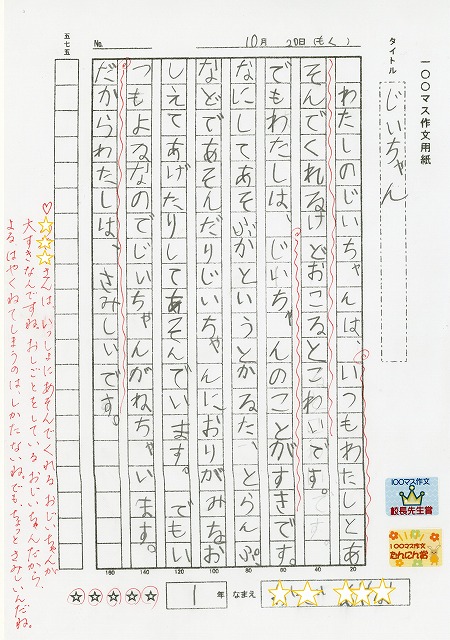 一〇〇マス作文用紙
タイトル
じいちゃん
10月 20日(もく)
No.
五七五
わたしのじいちゃんは、いつもわたしとあ
そんでくれるけどおこるとこわいです。
でもわたしは、じいちゃんのことがすきです。
なにしてあそぶかというとかるた、とらんぷ、
などであそんだりじいちゃんに、おりがみなお
しえてあげたりしてあそんでいます。でもい
つもよるなのでじいちゃんがねちゃいます。
だからわたしは、さみしいです。
20
40
60
80
100
120
140
160
さんは、いっしょにあそんでくれるおじいちゃんが
大すきなんですね。おしごとをしているおじいちゃんだから、
よるはやくねてしまうのはしかたないね。でもちょっとさみしいんだね。
100マス作文
校長先生賞
100マス作文
たんにん賞
1年 なまえ